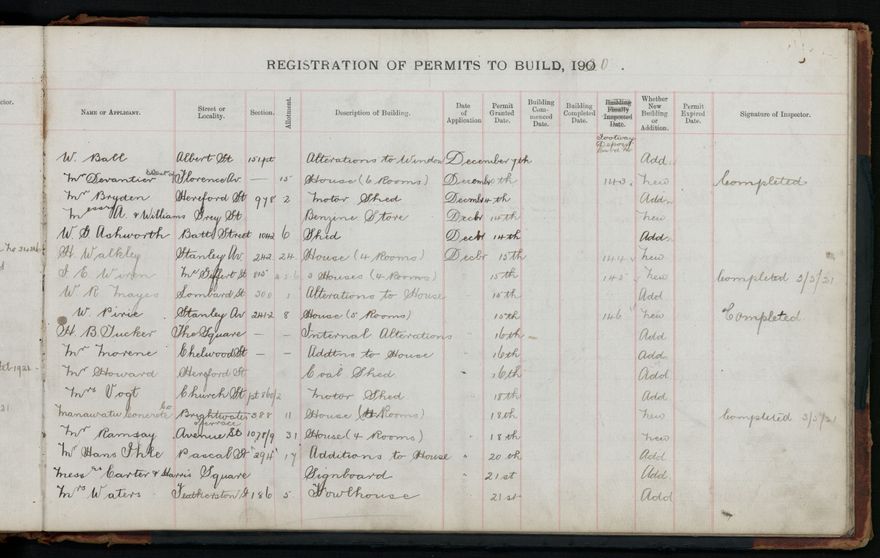 REGISTRATION OF PERMITS TO BUILD, 1900.
NAME OF APPLICANT. Street or Locality. Section. Allotment. Description of Building. Date of Application Permit Granted Date. Building Commenced Date. Building Completed Date. Building Finally Inspected Date. Whether New Building or Addition. Permit Expired Date. Signature of Inspector.
Footway Deposit
W. Ball Albert St 151 pt Alterations to Window December 9th Add
Mr Devantier Florence Av — 15 House (6 Rooms) December 10th 143 New Completed
Mr Bryden Hereford St 978 2 Motor Shed December 14th Addn
Messrs A. & Williams Grey St Benzine Store Decbr 14th New
W G Ashworth Batts Street 1042 6 Shed Decbr 14th Addn
H. Walkley Stanley Av 242 24 House (4 Rooms) Decbr 15th 144 New
Mr Giffert St 815 3 Houses (4 Rooms) 15th 145 New Completed 3/5/21
W R Mayes Lombard St 300 1 Alterations to House 15th Add
W. Pirie Stanley Av 2412 8 House (5 Rooms) 15th 146 New Completed
H. B. Tucker The Square — — Internal Alterations 16th Add
Mr Morene Chelwood St — — Addtns to House 16th Add
Mr Howard Hereford St Coal Shed 16th Add
Mrs Vogt Church St pt 860/2 Motor Shed 18th Add
Manawatu Concrete Co Brightwater Terrace 388 11 House (4 Rooms) 18th New Completed 3/5/21
Mr Ramsay Avenue St 1078/9 31 House (4 Rooms) " 18th New
Mr Hans Ihle Pascal St 294 17 Additions to House " 20th Add
Messrs Carter & Harris Square Signboard " 21st Add
Mrs Waters Featherston St 186 5 Fowlhouse 21st Add